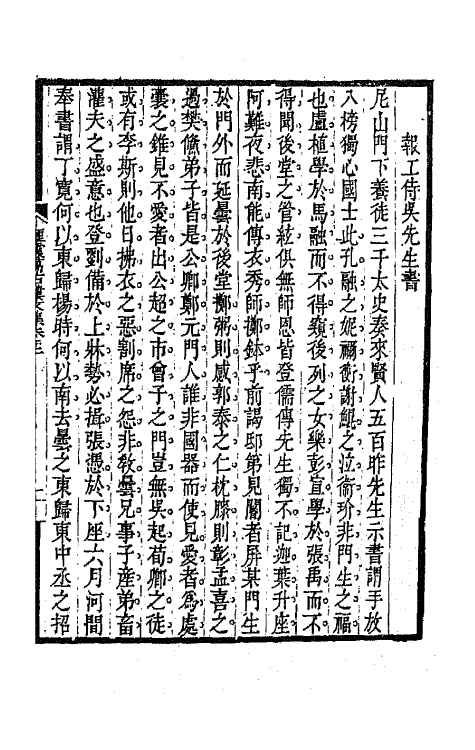 報工侍吳先生書
尼山門下養徒三千太史奏來賢人五百昨先生示書謂手放
入榜獨心國士此孔融之妮禰衡謝鯤之泣衞玠非門生之福
也盧植學於馬融而不得窺後列之女樂彭宣學於張禹而不
得聞後堂之管絃俱無師恩皆登儒傳先生獨不記迦葉升座
阿難夜悲南能傳衣秀師擲鉢乎前謁邸第見閽者屏某門生
於門外而延曇於後堂擲粥則感郭泰之仁枕膝則彰孟喜之
過樊儵弟子皆是公卿鄭元門人誰非國器而使見愛者爲處
囊之錐見不愛者出公超之市曾子之門豈無吳起荀卿之徒
或有李斯則他日拂衣之惡割席之怨非敎曇兄事子產弟畜
灌夫之盛意也登劉備於上牀勢必揖張憑於下座六月河間
奉書謂丁寬何以東歸楊時何以南去曇之東歸東中丞之招